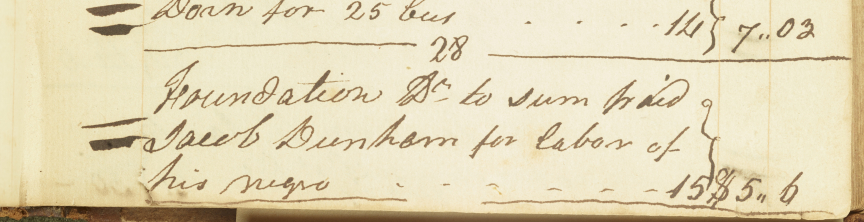 Corn for 25 bus . . . . 14 } 7.. 03
28
Foundation Dr to sum paid
Jacob Dunham for labor of
his negro - - - - - - 15 } $5.. 6